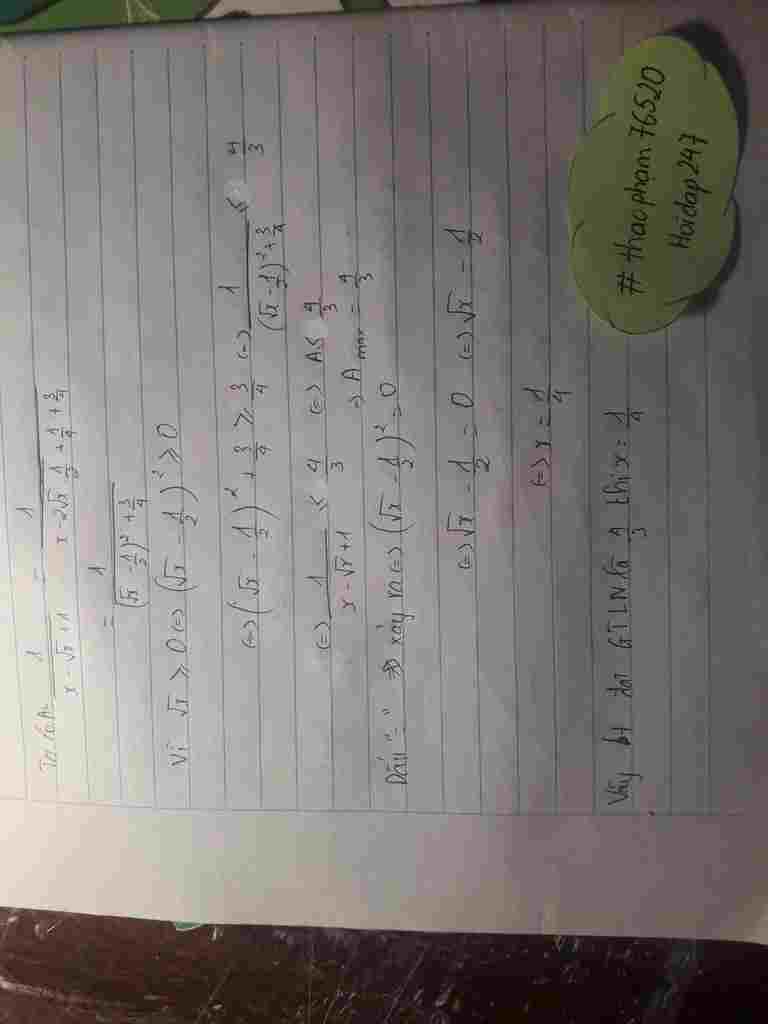 Ta có A = 1/(x - √x + 1) = 1/(x - 2√x 1/2 + 1/4 + 3/4)
= 1/((√x - 1/2)² + 3/4)
Vì √x ≥ 0 (=) (√x - 1/2)² ≥ 0
(=) (√x - 1/2)² + 3/4 ≥ 3/4 (=) 1/((√x - 1/2)² + 3/4) ≤ 4/3
(=) 1/(x - √x + 1) ≤ 4/3 (=) A ≤ 4/3
=) A max = 4/3
Dấu "=" xảy ra (=) (√x - 1/2)² = 0
(=) √x - 1/2 = 0 (=) √x = 1/2
(=) x = 1/4
Vậy bt đạt GTLN là 4/3 thì x = 1/4
# thaopham76520
Hoidap247